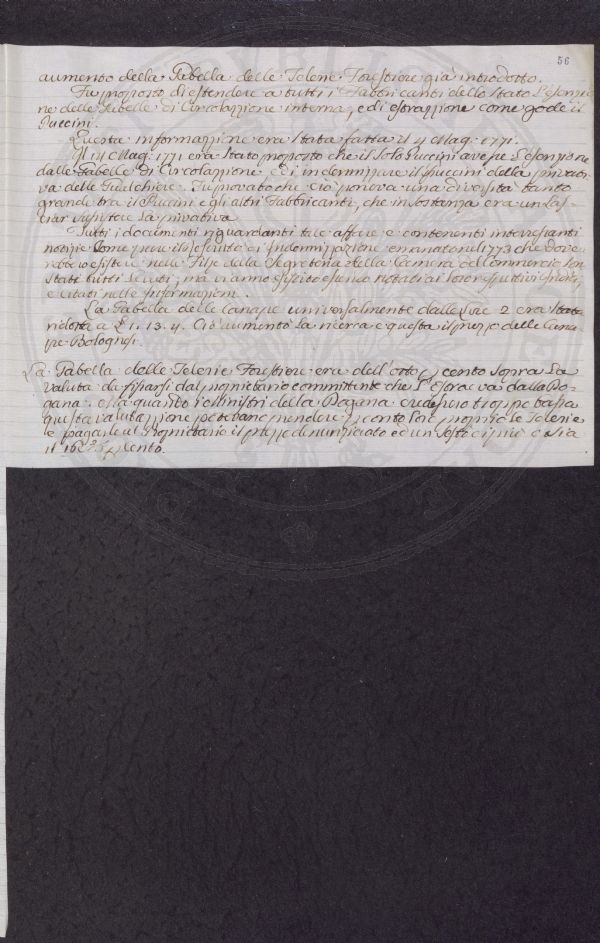 56
aumento della Gabella delle Telerie Forestiere già introdotto.
Fu proposto di estendere a tutti i Fabbricanti dello Stato l'esenzio
ne delle Gabelle di Circolazzione interna, e di estrazzione come gode il
Puccini.
Questa informazzione era stata fatta il 4 Mag: 1771.
Il 14 Mag: 1771 era stato proposto che il solo Puccini avesse l'esenzione
dalle Gabelle di Circolazzione, e d'indennizzare il Puccini della privati
va delle Gualchiere. Fu provato che ciò poneva una diversità tanto
grande tra il Puccini e gli altri Fabbricanti, che in sostanza era un las
ciar sussistere la privativa.
Tutti i documenti riguardanti tale affare e contenenti interessanti
notizie come pure il Rescritto di Indennizazione emanato nel 1773 che dove
rebbero esistere nelle Filze della Segreteria della Camera del Commercio son
stati tutti levati, ma vi anno esistito essendo notati ai loro respettivi Indici,
e citati nelle Informazioni.
La Gabella delle Canape universalmente dalle Lire 2 era stata
ridotta a £ 1. 13. 4. Ciò aumentò la ricerca e questa il prezzo delle Cana
pe Bolognesi.
La Gabella delle Telerie Forestiere era dell'otto per cento sopra la
valuta da fissarsi dal proprietario committente che l'estraeva dalla Do
gana. ma quando i ministri della Dogana credessero troppo bassa
questa valutazzione potebano prendere per conto loro proprio le Telerie
e pagarle al Proprietario il prezzo denunziato ed un sesto di più o sia
il 16 2/3 per cento.